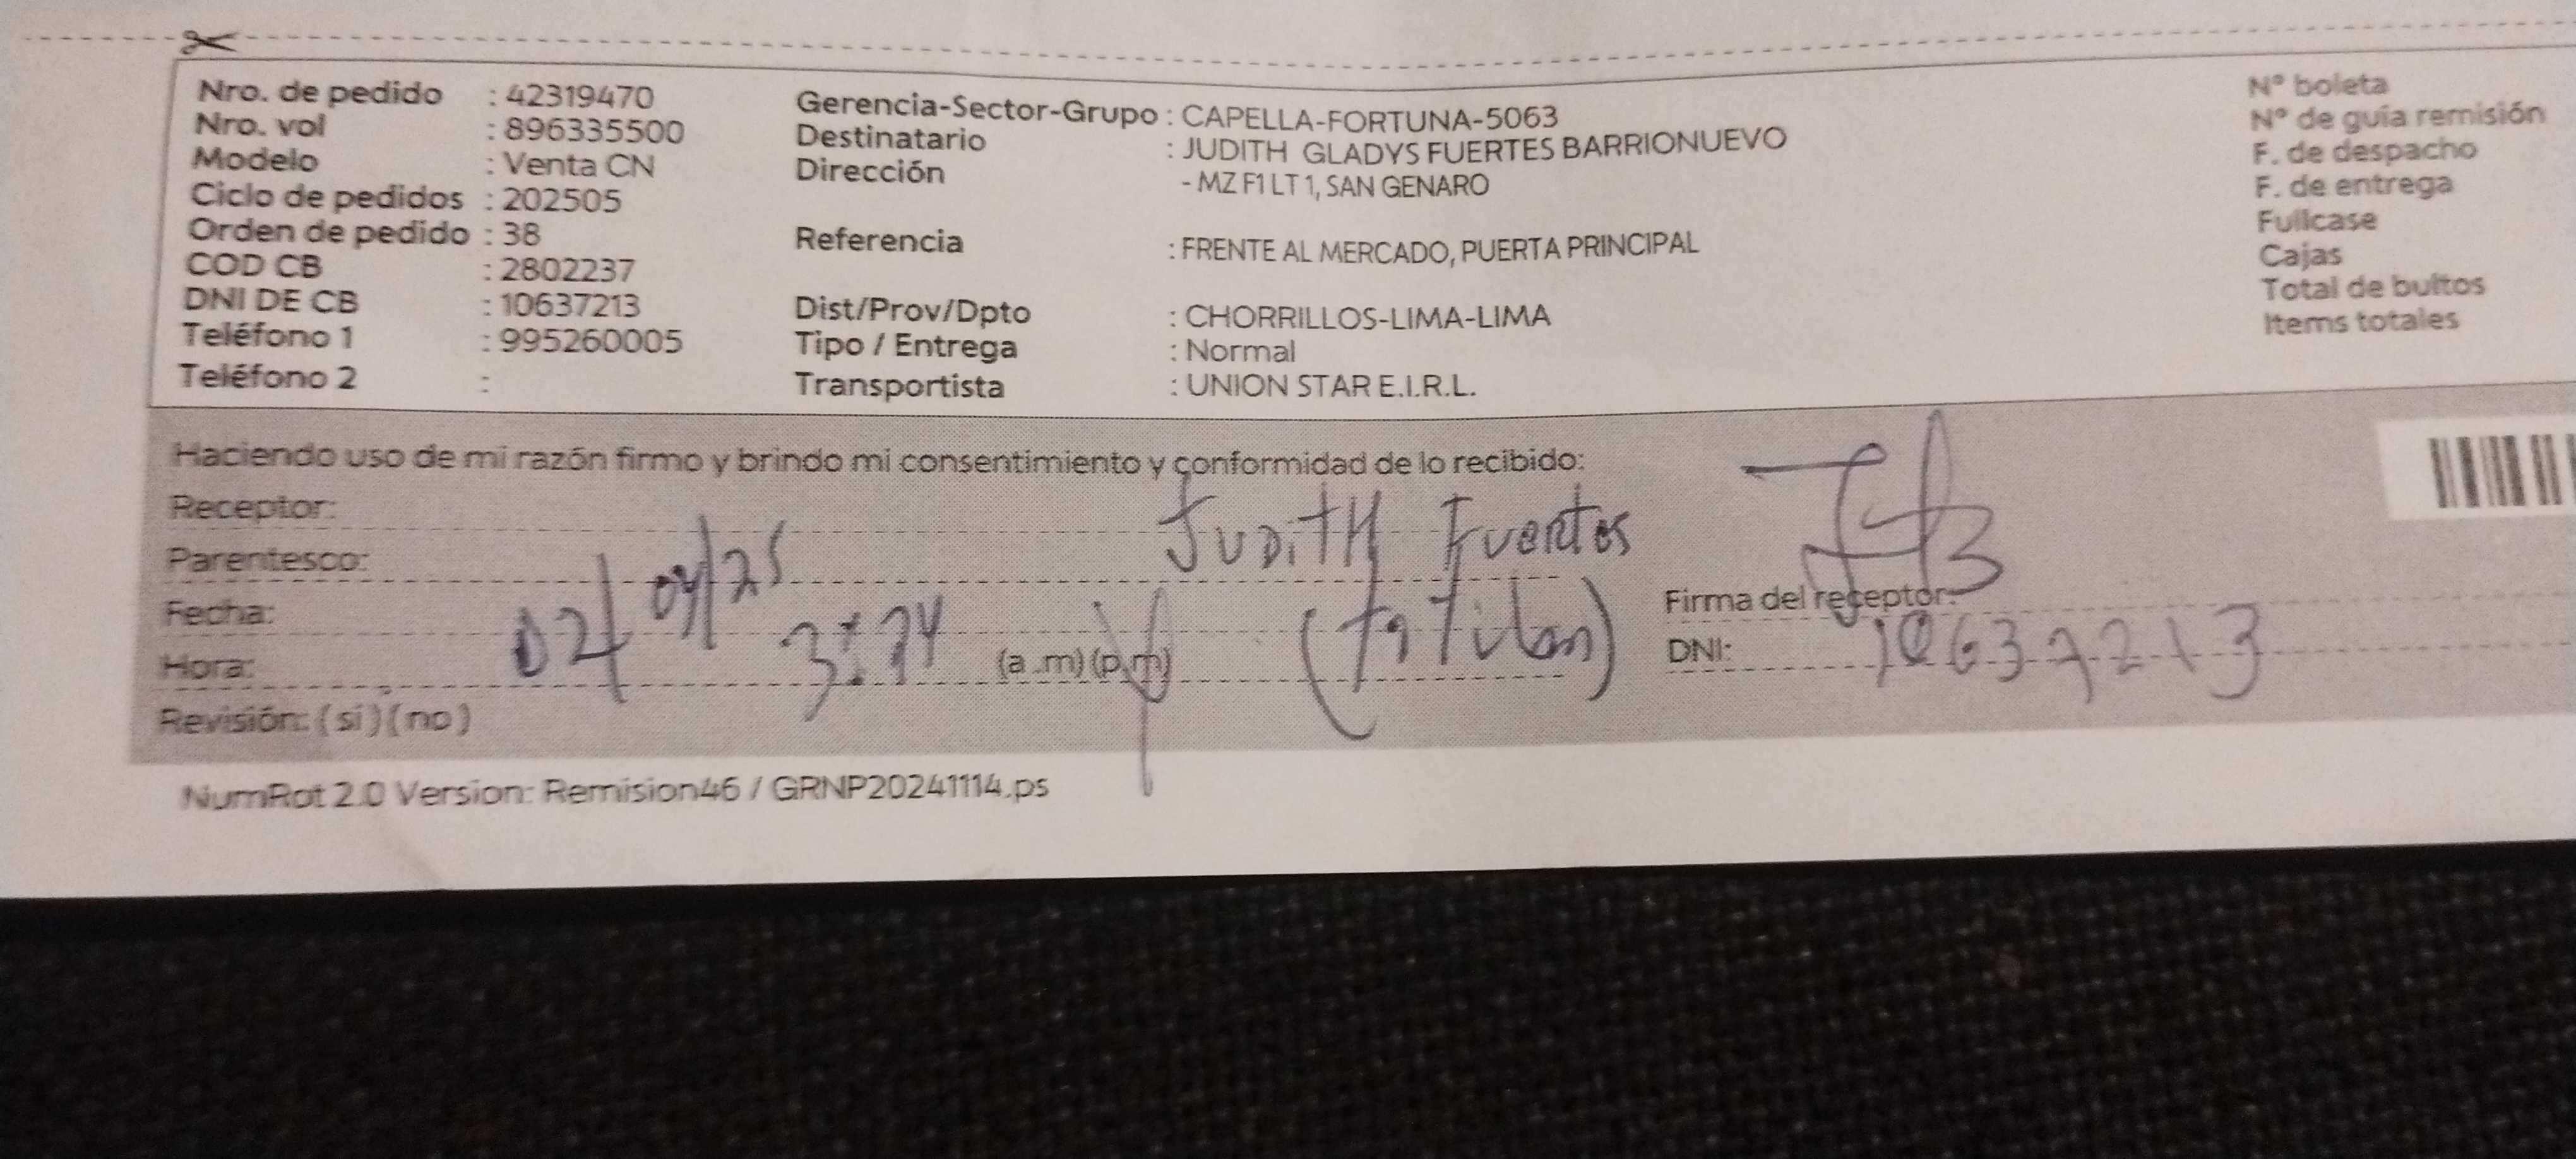 Nro. de pedido : 42319470
Nro. vol : 896335500
Modelo : Venta CN
Ciclo de pedidos : 202505
Orden de pedido : 38
COD CB : 2802237
DNI DE CB : 10637213
Teléfono 1 : 995260005
Teléfono 2 :
Gerencia-Sector-Grupo : CAPELLA-FORTUNA-5063
Destinatario : JUDITH GLADYS FUERTES BARRIONUEVO
Dirección - MZ F1 LT 1, SAN GENARO
Referencia : FRENTE AL MERCADO, PUERTA PRINCIPAL
Dist/Prov/Dpto : CHORRILLOS-LIMA-LIMA
Tipo / Entrega : Normal
Transportista : UNION STAR E.I.R.L.
N° boleta
N° de guía remisión
F. de despacho
F. de entrega
Fullcase
Cajas
Total de bultos
Items totales
Haciendo uso de mi razón firmo y brindo mi consentimiento y conformidad de lo recibido:
Receptor: Judith Fuertes
Parentesco:
Fecha: 02/04/25
Hora: (a .m) (p.m)
Revisión: ( si ) ( no )
Firma del receptor:
DNI: 10637213
NumRot 2.0 Version: Remision46 / GRNP20241114.ps